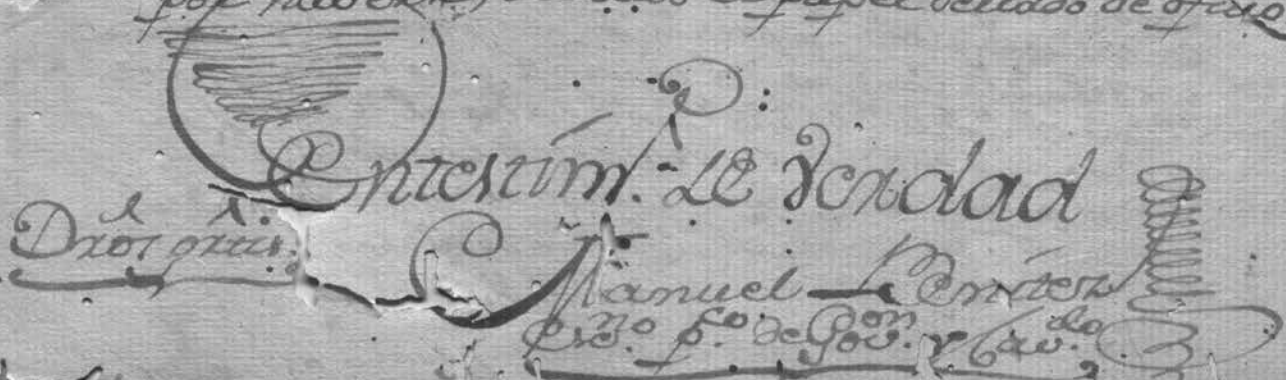 papel sellado de oficio
En testim.º de Verdad
Dros gratis.
Manuel Benitez
Esc.no p.co de Gov.on y Cav.do